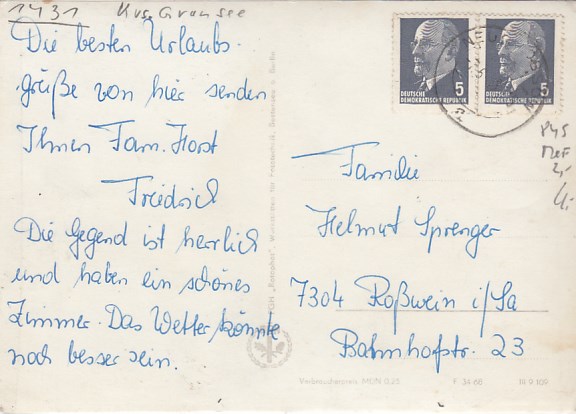 1431 Krs. Gransee
Die besten Urlaubs-
grüße von hier senden
Ihnen Fam. Horst
Friedrich
Die Gegend ist herrlich
und haben ein schönes
Zimmer. Das Wetter könnte
noch besser sein.
5
DEUTSCHE
DEMOKRATISCHE REPUBLIK
5
DEUTSCHE
DEMOKRATISCHE REPUBLIK
Familie
Helmut Sprenger
7304 Roßwein i/Sa
Bahnhofstr. 23
Verbraucherpreis MDN 0,25
F 34 66
III 9 109